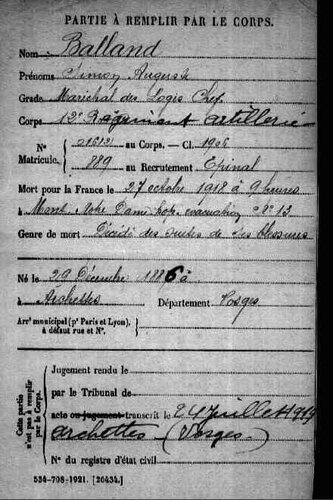 PARTIE À REMPLIR PAR LE CORPS.
Nom Balland
Prénoms Simon Auguste
Grade Maréchal des Logis Chef
Corps 12e Regiment artillerie
N° 01612 au Corps. — Cl. 1906
Matricule. 889 au Recrutement Epinal
Mort pour la France le 27 octobre 1918 à 9 heures
à Mont Notre Dame hop. evacuation N° 13
Genre de mort Décédé des suites de ses blessures
Né le 29 Décembre 1886
à Archettes Département Vosges
Arrt municipal (pr Paris et Lyon),
à défaut rue et N°.
Cette partie
n'est pas à remplir
par le Corps.
Jugement rendu le
par le Tribunal de
acte ou jugement transcrit le 24 juillet 1919
archettes (Vosges)
N° du registre d'état civil
534-708-1921. [26434.]